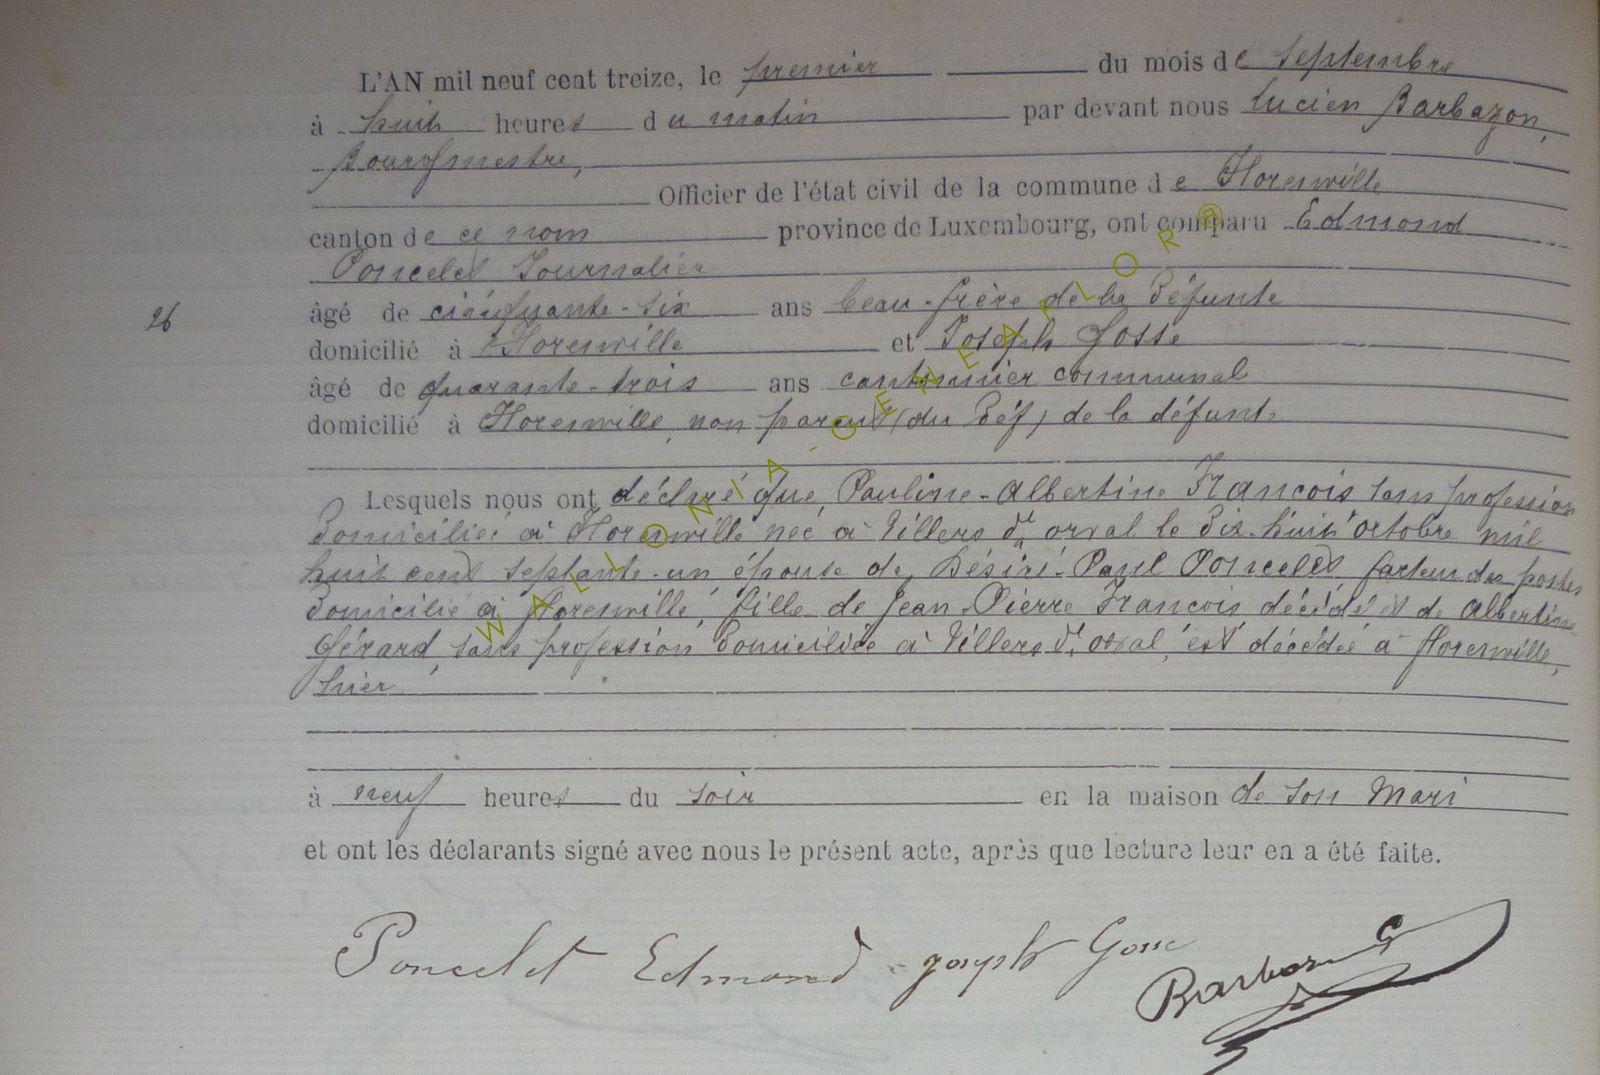 L'AN mil neuf cent treize, le premier du mois de Septembre
à huit heures du matin par devant nous Lucien Barbazon,
Bourgmestre,
Officier de l'état civil de la commune de Florenville
canton de ce nom province de Luxembourg, ont comparu Edmond
Poncelet Journalier
26
âgé de cinquante-six ans beau-frère de la Défunte
domicilié à Florenville et Joseph Gosse
âgé de quarante-trois ans cantonnier communal
domicilié à Florenville, non parent (du Déf) de la défunte
Lesquels nous ont déclaré que, Pauline-Albertine François sans profession
Domiciliée à Florenville née à Villers dt orval le Dix-huit octobre mil
huit cent septante-un épouse de Désiré-Paul Poncelet, facteur des postes
Domicilié à Florenville, fille de Jean-Pierre François décédé et de Albertine
Gérard, sans profession Domiciliée à Villers dt orval, est décédée à Florenville,
hier
à neuf heures du soir en la maison de son Mari
et ont les déclarants signé avec nous le présent acte, après que lecture leur en a été faite.
Poncelet Edmond joseph Gosse Barbazon
WALLONIA-GENEAFLOR®